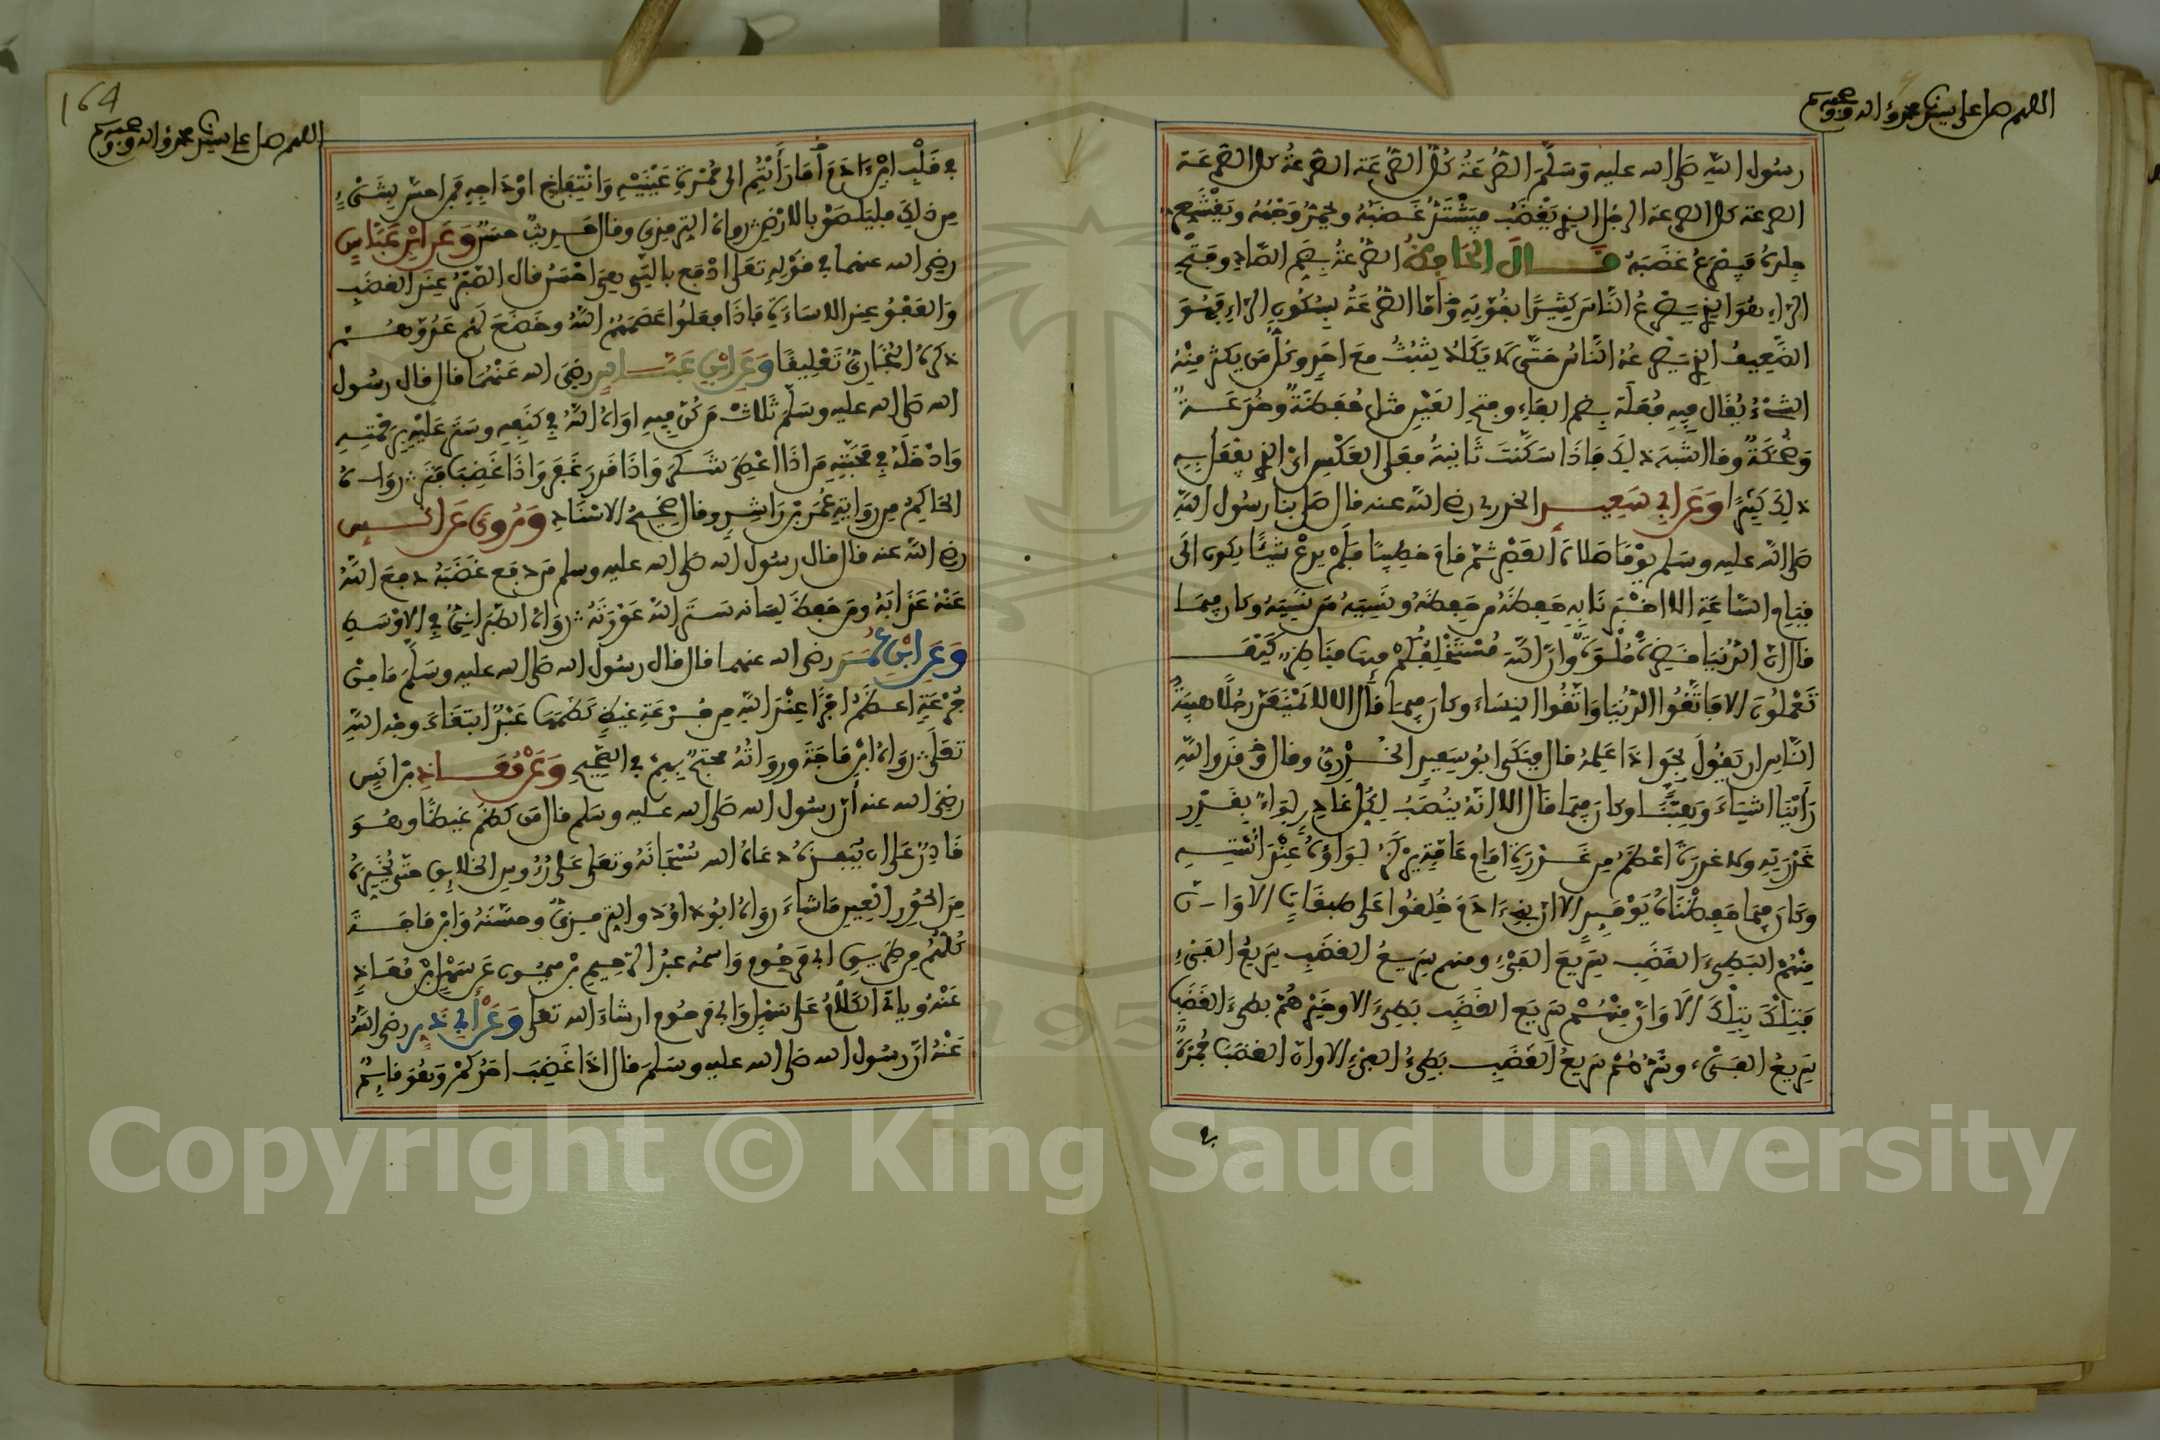 اللهم صل على سيدنا محمد وءاله وصحبه وسلم
رسول الله صلى الله عليه وسلم الصُّرَعَةُ كل الصُّرَعَة الصُّرَعَةُ كل الصُّرَعَة
الصرعة كل الصرعة الرجل الذي يَغْضَبُ فيشْتَدُّ غَضَبُهُ ويحمرُّ وَجْهُهُ ويَقْشَعِرُّ
جلدهُ فيصْرَعُ غَضَبَهُ قال الحافظُ الصُّرَعَةُ بِضَم الصَّادِ وفَتْحِ
الرَّاءِ هُوَ الذِي يَصْرَعُ النَّاسَ كَثِيرًا بقُوَّتِهِ وَأمَّا الصُّرْعَةُ بِسُكُونِ الرَّاءِ فَهُوَ
الضَّعِيفُ الذِي يَصْرَعُهُ النَّاسُ حَتَّى لَا يَكَادُ يَثْبُتُ مَعَ أحَدٍ وكُلُّ مَن يكثر مِنْهُ
الشَّيْءُ يُقَالُ فِيهِ فُعَلَةٌ بِضَمِ الفَاءِ وفتحِ العَيْنِ مثل حُفَظَةٌ وخُدَعَةٌ
وَضُحَكَةٌ وما اشْبَهَ ذلِكَ فإذَا سَكَّنتَ ثَانِيَهُ فعلى العَكْسِ ايْ الذِي يُفْعَلُ بِهِ
ذَلِكَ كثِيرًا وَعَن أبِي سَعِيدٍ الخدري رضي اللهُ عنه قال صَلى بنا رسُول اللهِ
صَلى اللهُ عليه وسَلم يَوْمًا صَلاةَ العَصْرِ ثُمَّ قَامَ خَطِيبًا فَلَمْ يدعْ شَيْئًا يكون الَى
قِيَامِ السَّاعَةِ إلا اخْبَرَنَا بِهِ حَفِظَهُ من حَفِظَهُ ونَسِيَهُ مَن نَسِيَهُ وكان فِيمَا
قال انَّ الدُّنْيَا خَضِرَةٌ حُلْوَةٌ وانَّ اللهَ مُسْتَخْلِفُكُمْ فِيهَا فنَاظِرٌ كَيْفَ
تَعْمَلُونَ الا فَاتَّقُوا الدُّنْيَا وَاتَّقُوا النِسَاءَ وكان فِيمَا قَالَ الا لا تمْنَعَنَّ رجُلًا هيبَةُ
النَّاسِ ان يَقُولَ بِحَقٍّ اذَا عَلِمَهُ قال فبَكَى ابُو سَعِيدٍ الخُدْرِيُّ وقال وقَدْ واللهِ
رَأَيْنَا اشْيَاءَ فَهِبْنَا وكان فِيمَا قَالَ الا انَّهُ يُنْصَبُ لِكُلِ غَادِرٍ لِوَاءٌ بِقَدْرِ
غَدْرَتِهِ ولا غدرةَ اعْظَمُ مِن غَدْرَةِ امَامِ عَامَّةٍ يُرْكَزُ لِوَاؤُهُ عِنْدَ اسْتِهِ
وكَانَ فِيمَا حَفِظْنَاهُ يَوْمَئِذٍ الا انَّ بَنِي ءادَمَ خُلِقُوا عَلَى طبقَاتٍ الا وَانَّ
مِنْهُمُ البَطِيءَ الغَضَبِ سَرِيعَ الفَيْءِ ومنهم سَرِيعُ الغَضَبِ سَرِيعُ الفَيْءِ
فَتِلْكَ بِتِلْكَ الا وَانَّ مِنْهُمْ سَرِيعَ الغَضَبِ بَطِيءَ الفيء الا وخَيْرُهُمْ بطيءُ الغَضَبِ
سَرِيعُ الفَيْءِ وشَرُّهُمْ سَرِيعُ الغَضَبِ بَطِيءُ الفَيْءِ الا وانَّ الغضَبَ جَمْرَةٌ
164
اللهم صل على سيدنا محمد وءاله وصحبه وسلم
في قَلْبِ ابْنِ ءادَمَ أَمَا رَأيْتُم الى حُمْرَةِ عَيْنَيْهِ وَانْتِفَاخِ اوْدَاجِهِ فمن احسَّ بِشَيْءٍ
مِن ذلِكَ فليَلصَقْ بالارْضِ رواهُ التِرمذي وقال حديثٌ حسَنٌ وَعَنِ ابْنِ عَبَّاسٍ
رضِي الله عنهما في قَوْلِهِ تعَالى ادْفع بالَّتِي هِيَ احْسَنُ قال الصَّبْرُ عِنْدَ الغَضَبِ
وَالعَفْوُ عِند الاسَاءَةِ فَإذَا فَعَلُوا عَصَمَهُمُ اللهُ وخَضَعَ لَهُم عَدُوُّهُمْ
ذكرهُ البُخَارِيُّ تَعْلِيقًا وَعَنِ ابْنِ عَبَّاسٍ رضِيَ الله عَنْهُمَا قال قال رسُول
الله صَلى الله عليه وسَلَّمَ ثَلَاثٌ مَن كُنَّ فِيهِ اوَاهُ اللهُ فِي كَنَفِهِ وسَتَرَ عَلَيْهِ بِرَحْمَتِهِ
وَادْخَلَهُ فِي مَحَبَّتِهِ مَن اذَا اعْطِيَ شَكَرَ وَاذَا قَدَرَ غَفَرَ وَاذَا غَضِبَ فَتَرَ رَوَاهُ
الحَاكِمُ مِن رِوَايَةِ عُمَرَ بْنِ رَاشِدٍ وقال صَحِيحُ الاسْنَادِ وَرُوِيَ عَن انَسٍ
رضي اللهُ عنه قال قال رسُول الله صَلى الله عليه وسلم مَن دفع غَضَبَهُ دفعَ اللهُ
عَنْهُ عَذَابَهُ ومَن حَفِظَ لِسَانه سَتَرَ اللهُ عَوْرَتَهُ رَوَاهُ الطَّبَرَانِيُّ فِي الاوْسَطِ
وَعَنِ ابْنِ عُمَرَ رضي الله عنهما قال قال رسُول الله صَلى الله عليه وسَلَّمَ مَا مِنْ
جُرْعَةٍ اعظَمُ اجْرًا عِنْدَ اللهِ مِن جُرْعَةِ غَيْظٍ كَظَمَهَا عَبْدٌ ابتِغَاءَ وجْهِ اللهِ
تعَلَى رَوَاهُ ابْنُ مَاجَةَ ورُوَاتُهُ مُحْتَجٌّ بِهِمْ فِي الصَّحِيحِ وَعَنْ مُعَاذِ بْنِ انَسٍ
رضِيَ الله عنه أنَّ رسُول الله صَلى الله عليه وسَلم قال مَن كَظَمَ غَيْظًا وهُوَ
قَادِرٌ عَلى ان يُنْفِذَهُ دعَاهُ الله سُبْحَانَهُ وتعَلى عَلى رُءُوسِ الخَلائِقِ حتَّى يُخَيِّرَهُ
مِنَ الحُورِ العِينِ مَا شاءَ رَوَاهُ ابُو دَاوُدَ والتِرمِذِيُّ وحسَّنَهُ وَابْنُ مَاجَةَ
كُلُّهُم مِن طَرِيقِ ابي مَرحُومٍ وَاسمُهُ عبْدُ الرَّحِيمِ بْنُ مَيمُونٍ عَن سَهْلِ ابْنِ مُعَاذٍ
عَنْهُ ويأتِي الكَلَامُ عَلى سَهْلٍ وَابِي مَرحُومٍ ان شاءَ الله تعلى وَعَنْ أَبِي ذَرٍ رضي اللهُ
عَنْهُ أنَّ رسُول الله صَلى الله عليه وسَلم قال اذَا غَضِبَ احَدُكُمْ وَهُوَ قَائِمٌ
Copyright © King Saud University
195